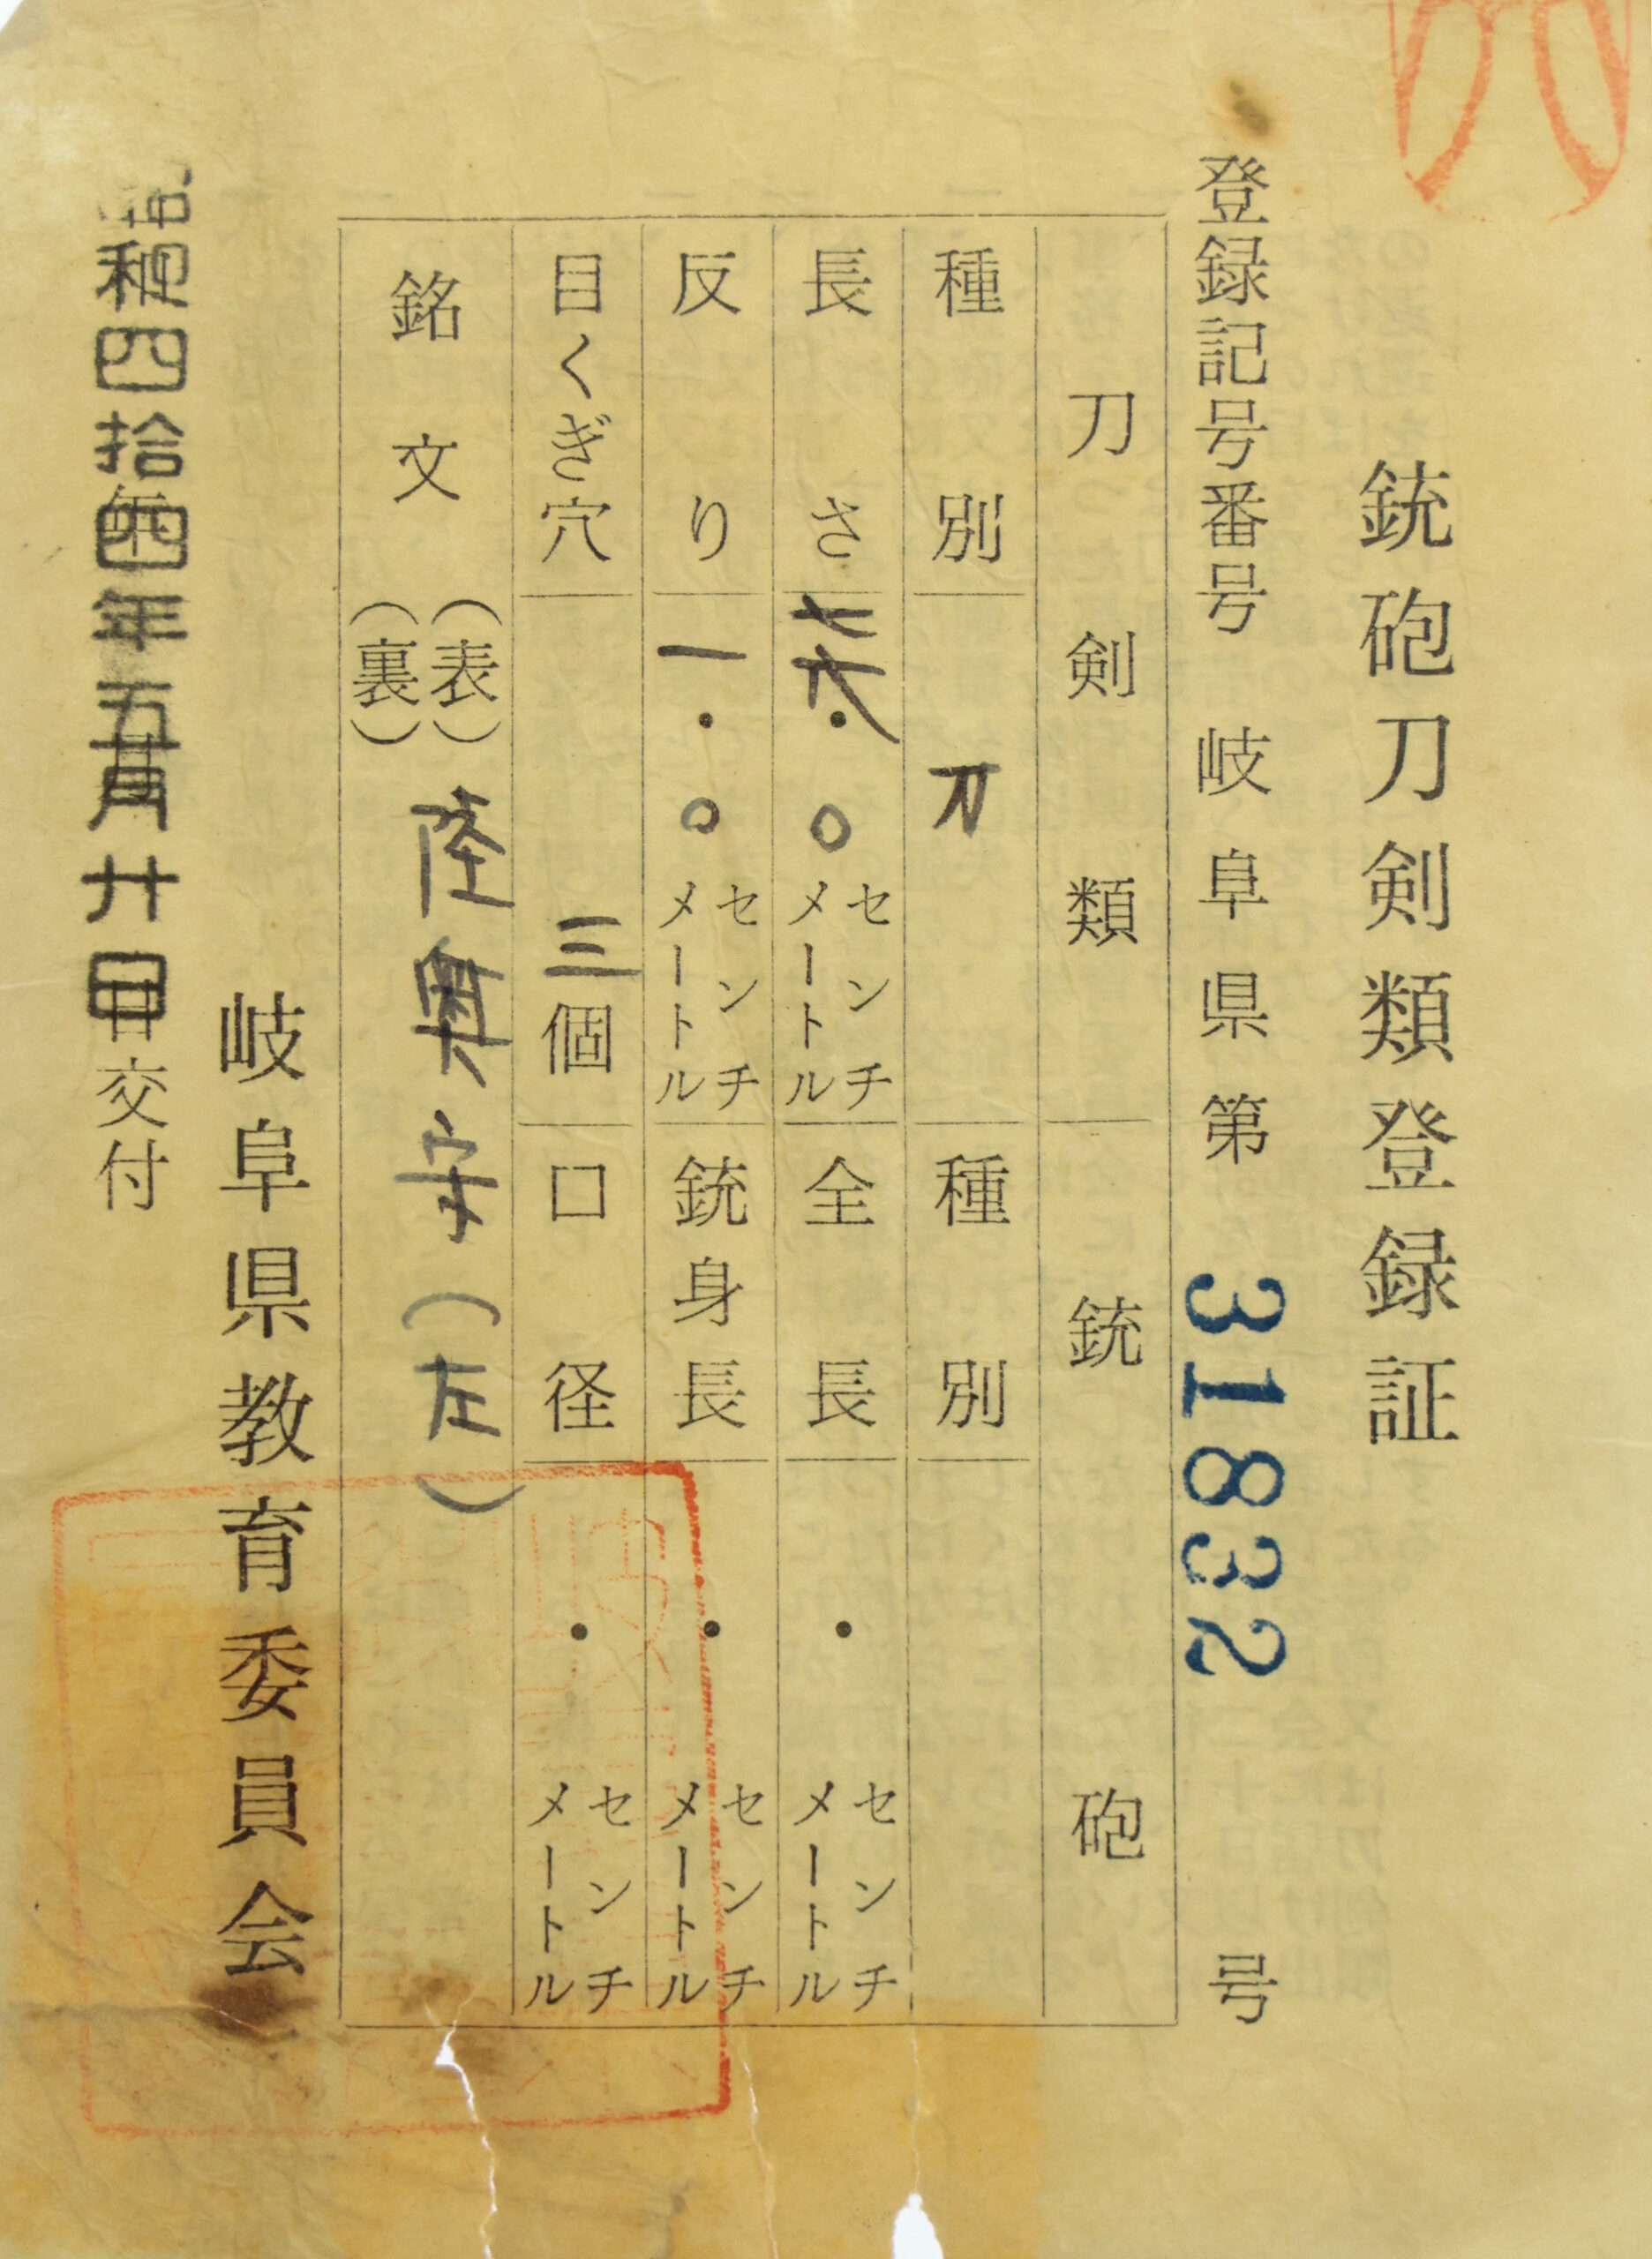 銃砲刀剣類登録証
登録記号番号 岐阜県第 31832 号
刀剣類 銃砲
種別 刀 種別
長さ 七六・〇 センチメートル 全長 ・ センチメートル
反り 一・〇 センチメートル 銃身長 ・ センチメートル
目くぎ穴 三個 口径 ・ センチメートル
銘文 (表) 陸奥守(左)
(裏)
岐阜県教育委員会
昭和四拾四年五月廿日交付